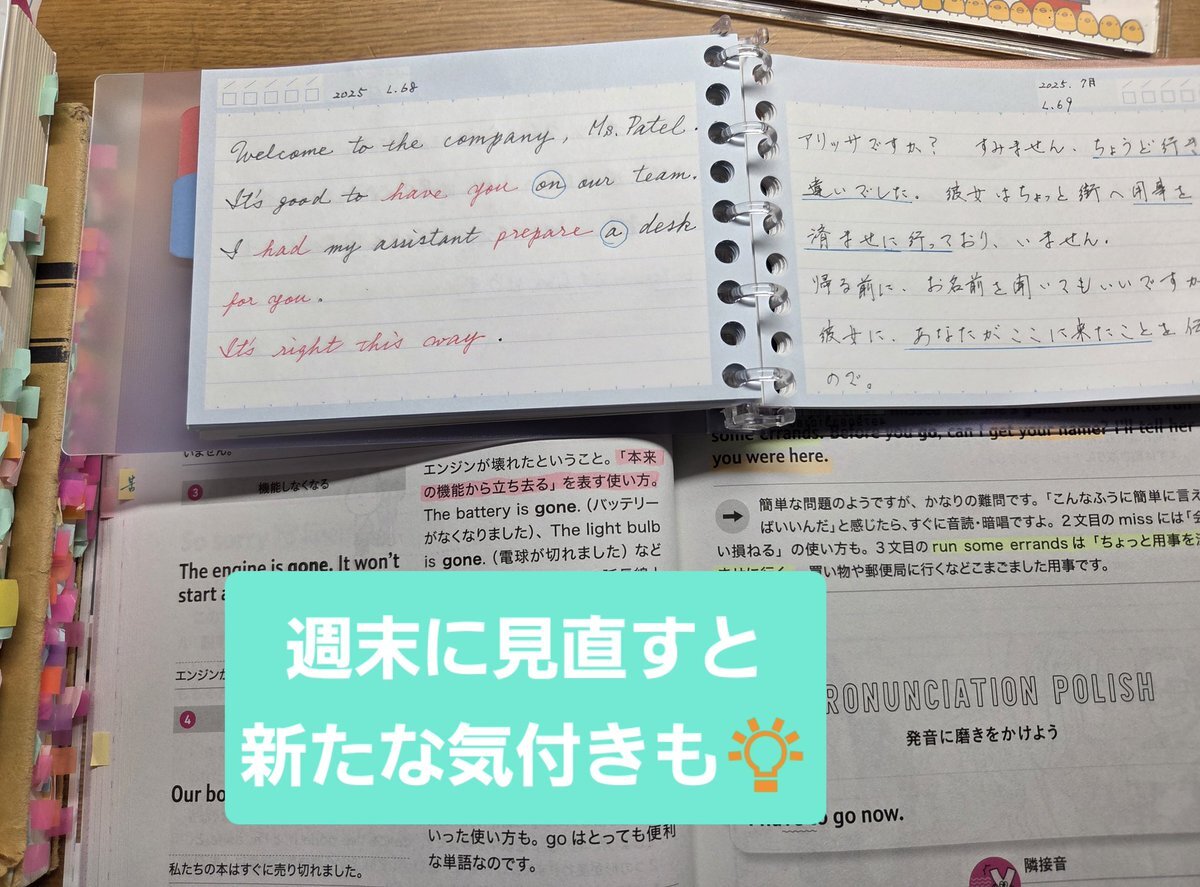 2025 L.68
Welcome to the company, Ms. Patel.
It's good to have you on our team.
I had my assistant prepare a desk
for you.
It's right this way.
2025. 7月
L.69
アリッサですか? すみません、ちょうど行き
違いでした。彼女はちょっと街へ用事を
済ませに行っており、いません。
帰る前に、お名前を聞いてもいいですか
彼女に、あなたがここに来たことを伝
ので。
いません。
3 機能しなくなる
The engine is gone. It won't
start
エンジンが
4
Our bo
私たちの本はすぐに売り切れました。
エンジンが壊れたということ。「本来
の機能から立ち去る」を表す使い方。
The battery is gone. (バッテリー
がなくなりました)、The light bulb
is gone. (電球が切れました) など
いった使い方も。goはとっても便利
な単語なのです。
some errands. Before you go, can I get your name? I'll tell her
you were here.
簡単な問題のようですが、かなりの難問です。「こんなふうに簡単に言え
ばいいんだ」と感じたら、すぐに音読・暗唱ですよ。2文目のmissには「会
い損ねる」の使い方も。3文目のrun some errandsは「ちょっと用事を済
ませに行く」。買い物や郵便局に行くなどこまごました用事です。
RONUNCIATION POLISH
発音に磨きをかけよう
to go now.
隣接音
週末に見直すと
新たな気付きも